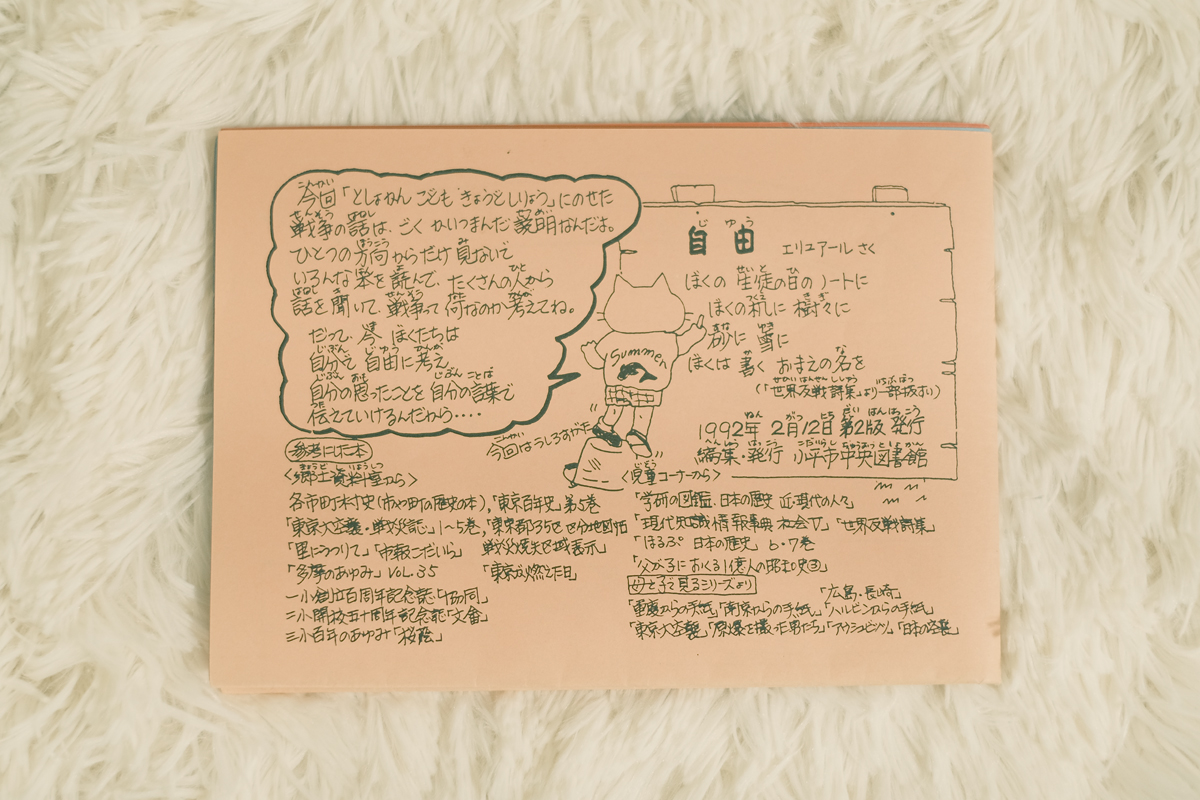 今回「としょかん こども きょうどしりょう」にのせた
戦争の話は、ごく かいつまんだ 説明なんだよ。
ひとつの方向からだけ 見ないで
いろんな本を読んで、たくさんの人から
話を聞いて、戦争って何なのか考えてね。
だって、今 ぼくたちは
自分で 自由に考え
自分の思ったことを 自分の言葉で
伝えていけるんだから‥‥
自由 エリュアール さく
ぼくの 生徒の日の ノートに
ぼくの机に 樹々に
砂に 雪に
ぼくは 書く おまえの名を
(「世界反戦詩集」より一部抜すい)
1992年 2月12日 第2版 発行
編集・発行 小平市中央図書館
Summer
今回はうしろすがた
参考にした本
〈郷土資料室から〉
各市町村史(市や町の歴史の本),「東京百年史」第5巻
「東京大空襲・戦災誌」1〜5巻,「東京都35区 区分地図帖
戦災焼失区域表示」
「里にうつりて」「市報こだいら」
「多摩のあゆみ」VOL.35 「東京が燃えた日」
一小創立百周年記念誌「協同」
二小開校五十周年記念誌「文畚」
三小百年のあゆみ「桜蔭」
〈児童コーナーから〉
「学研の図鑑、日本の歴史 近・現代の人々」
「現代知識情報事典 社会Ⅴ」「世界反戦詩集」
「ほるぷ 日本の歴史」6・7巻
「父が子におくる1億人の昭和史③」
母と子で見るシリーズより
「広島・長崎」
「重慶からの手紙」「南京からの手紙」「ハルビンからの手紙」
「東京大空襲」「原爆を撮った男たち」「アウシュビッツ」「日本の空襲」